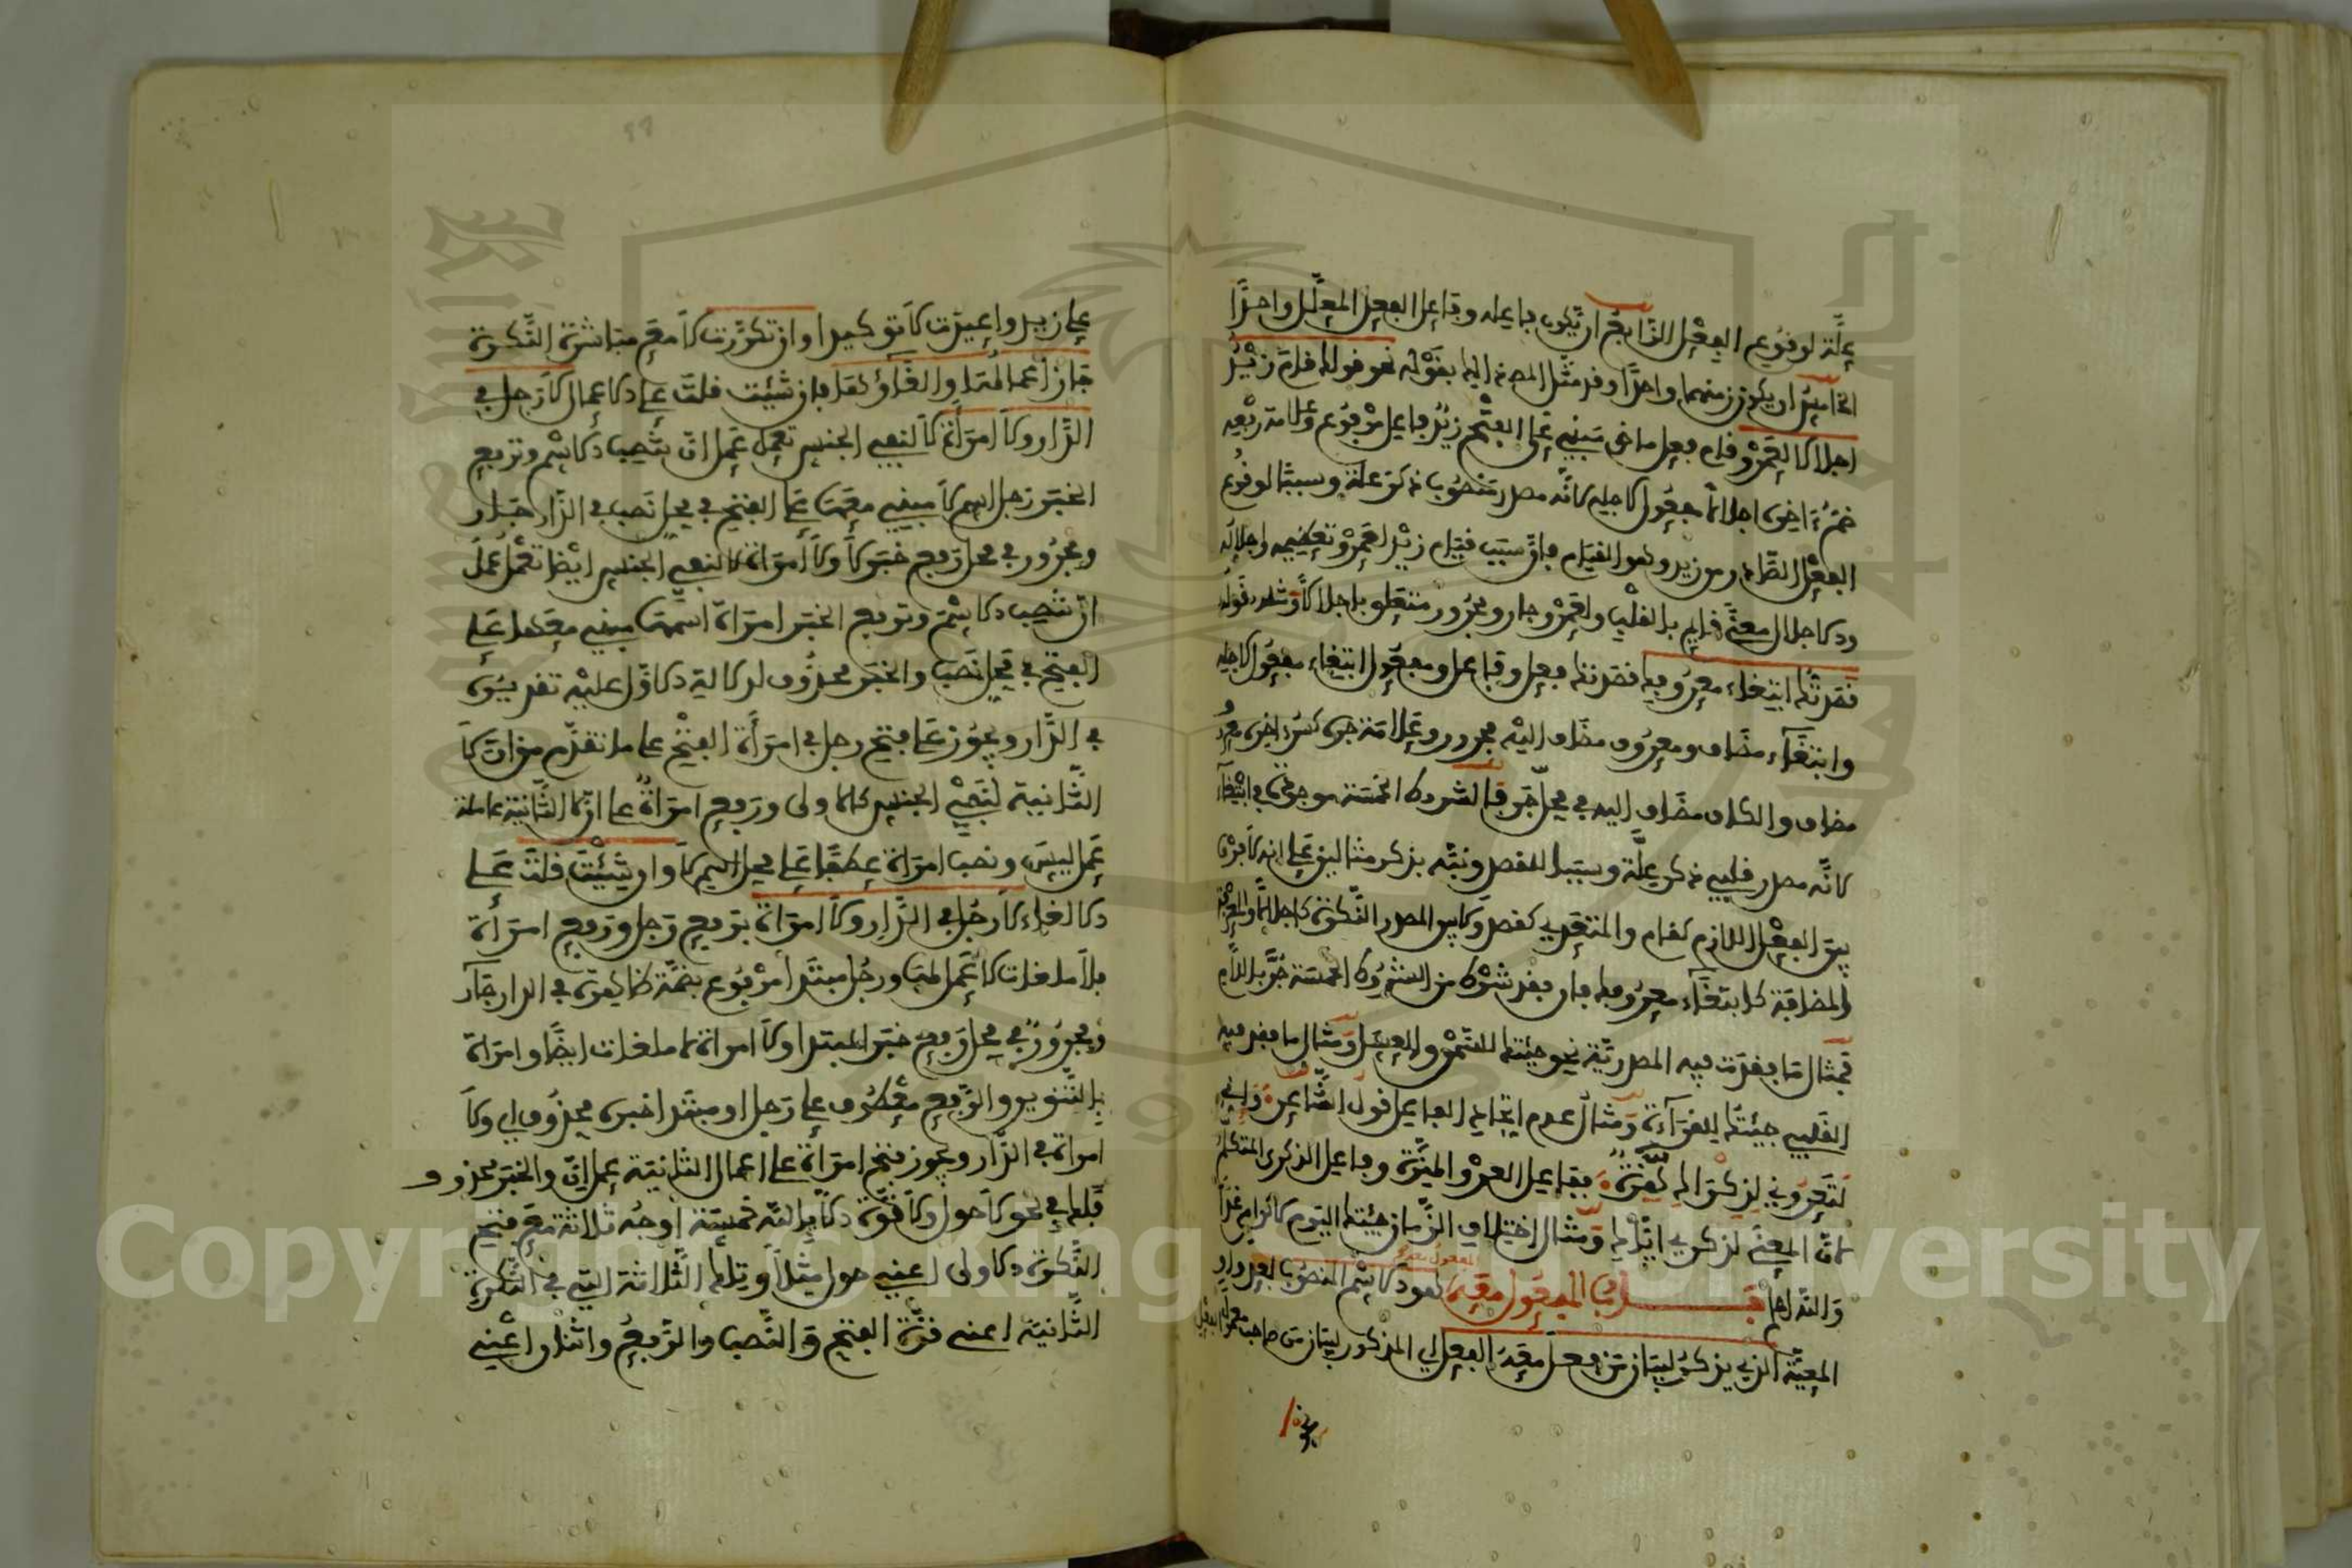 علة لوقوع الفعل الرابع ان يكون فاعله وفاعل الفعل المعلل واحدا
الخامس ان يكون زمنهما واحدا وقد مثل المصنف اليها بقوله نحو قولك قام زيد
اجلالا لعمرو قام فعل ماض مبني على الفتح زيد فاعل مرفوع وعلامة رفعه
ضم ءاخره اجلالا مفعول لاجله لانه مصدر منصوب ذكر علة وسببا لوقوع
الفعل الصادر من زيد وهو القيام فان سبب قيام زيد لعمرو تعظيمه واجلاله
والاجلال معنى قايم بالقلب ولعمرو جار ومجرور متعلق باجلالا وشله قوله
قصدتك ابتغاء معروفك قصدتك فعل وفاعل ومفعول ابتغاء مفعول لاجله
وابتغاء مضاف ومعروف مضاف اليه مجرور وعلامة جره كسر ءاخره معرو
مضاف والكاف مضاف اليه في محل جر فالشروط الخمسة موجودة في ابتغاء
لانه مصدر قلبي ذكر علة وسببا للقصد ونبه بذكر مثالين على انه لا فرق
بين الفعل اللازم كقام والمتعدي كقصد ولا بين المصدر النكرة كاجلالا والمعرفة
بالمضافة كابتغاء معروفك فان فقد شرط من الشروط الخمسة جر باللام
فمثال ما فقدت فيه المصدرية نحو جئتك للتمر والعسل ومثال ما فقد فيه
القلبي جئتك للقراءة ومثال عدم اتحاد الفاعل قول الشاعر واني
لتعروني لذكراك هزة ففاعل العرو الهزة وفاعل الذكرى المتكلم
لان المعنى لذكري اياك ومثال اختلاف الزمان جئتك اليوم لاكرام غدا
والله اعلم باب المفعول معه المفعول معه هو الاسم المنصوب بعد واو
المعية الذي يذكر لبيان من فعل معه الفعل اي المذكور لبيان من صاحب معمول الفعل
على زيد واعيدت لا توكيدا وان تكررت لا مع مباشرة النكرة
جاز اعمالها والغاؤها فان شئت قلت على الاعمال لا رجل في
الدار ولا امرأة لا لنفي الجنس تعمل عمل ان تنصب الاسم وترفع
الخبر رجل اسم لا مبني معها على الفتح في محل نصب في الدار جار
ومجرور في محل رفع خبر لا ولا امرأة لا لنفي الجنس ايضا تعمل عمل
ان تنصب الاسم وترفع الخبر امرأة اسمها مبني معها على
الفتح في محل نصب والخبر محذوف لدلالة الاول عليه تقديره
في الدار ويجوز على فتح رجل في امرأة الفتح على ما تقدم من ان لا
الثانية لنفي الجنس كالاولى ورفع امرأة على ان لا الثانية عاملة
عمل ليس ونصب امرأة عطفا على محل اسم لا وان شئت قلت على
الالغاء لا رجل في الدار ولا امرأة برفع رجل ورفع امرأة
فلا ملغات لا عمل لها ورجل مبتدأ مرفوع بضمة ظاهرة في الدار جار
ومجرور في محل رفع خبر المبتدا ولا امرأة لا ملغات ايضا وامرأة
بالتنوين والرفع معطوف على رجل او مبتدا خبره محذوف اي ولا
امرأة في الدار ويجوز فتح امرأة على اعمال الثانية عمل ان والخبر محذوف
فلك في نحو لا حول ولا قوة الا بالله خمسة اوجه ثلاثة مع فتح
النكرة الاولى اعني حول مثلا وتلك الثلاثة التي في النكرة
الثانية اعني قوة الفتح والنصب والرفع واثنان اعني
Copyright © King Saud University